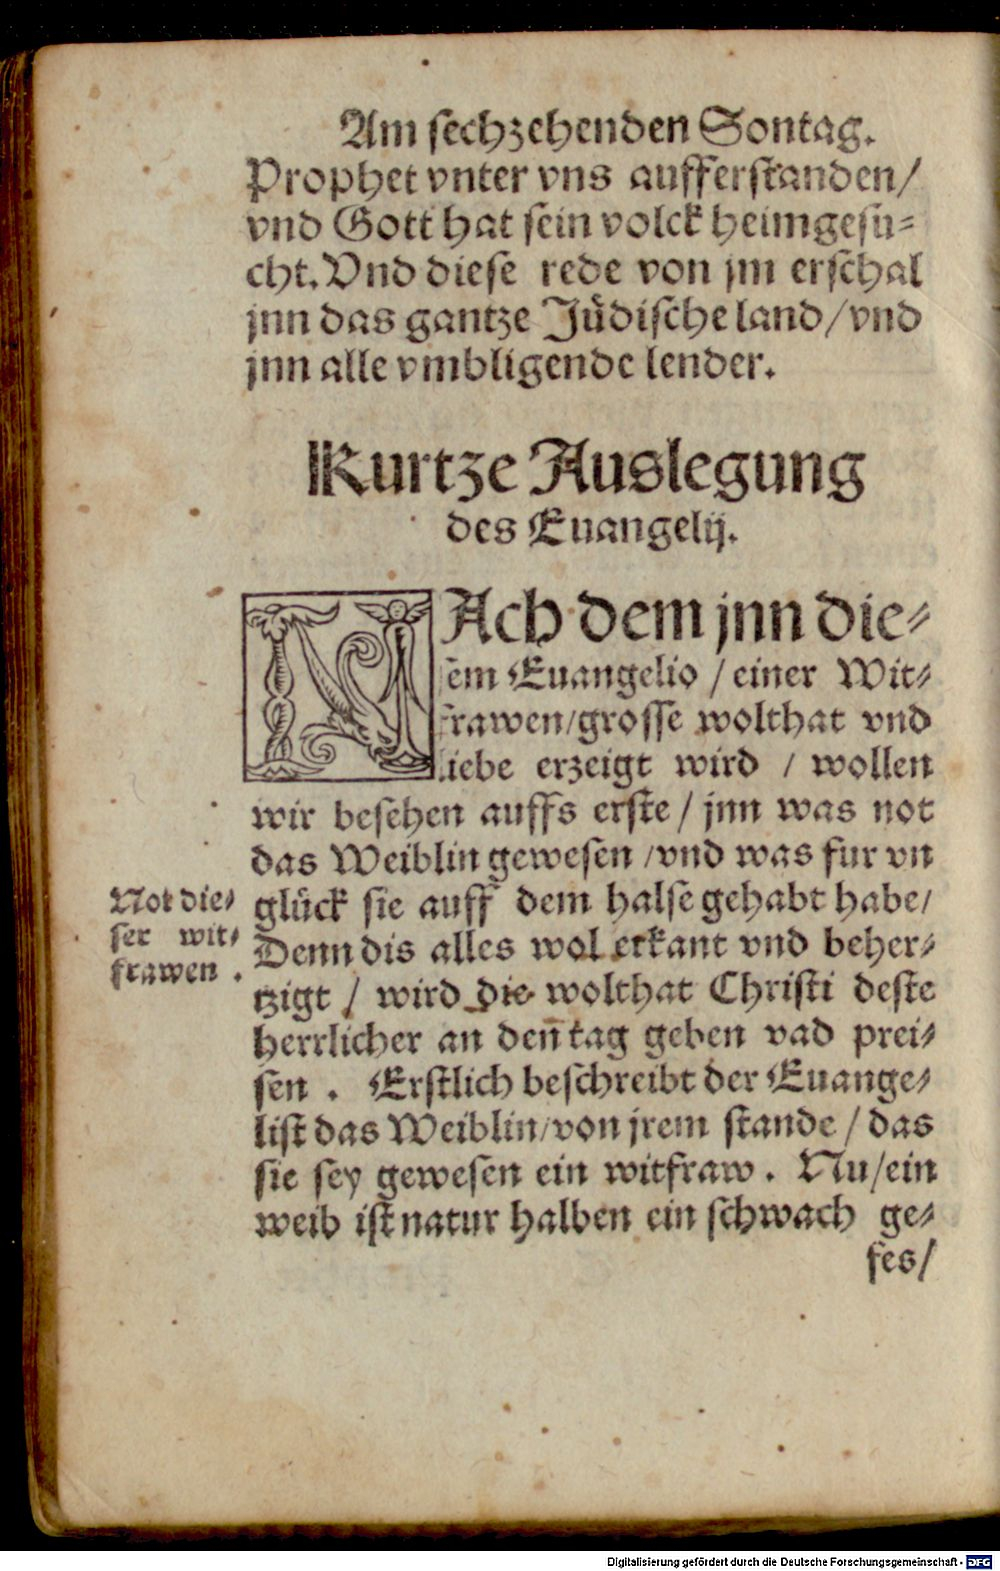 Am sechzehenden Sontag.
Prophet vnter vns aufferstanden/
vnd Gott hat sein volck heimgesu-
cht. Vnd diese rede von jm erschal
jnn das gantze Jüdische land/vnd
jnn alle vmbligende lender.
Kurtze Auslegung
des Euangelij.
NAch dem jnn die-
sem Euangelio / einer Wit-
frawen/grosse wolthat vnd
liebe erzeigt wird / wollen
wir besehen auffs erste / jnn was not
das Weiblin gewesen /vnd was fur vn
glück sie auff dem halse gehabt habe/
Denn dis alles wol erkant vnd beher-
tzigt / wird die wolthat Christi deste
herrlicher an den tag geben vad prei-
sen . Erstlich beschreibt der Euange-
list das Weiblin/von jrem stande / das
sie sey gewesen ein witfraw . Nu/ein
weib ist natur halben ein schwach ge-
fes/
Not die-
ser wit-
frawen .
Digitalisierung gefördert durch die Deutsche Forschungsgemeinschaft - DFG